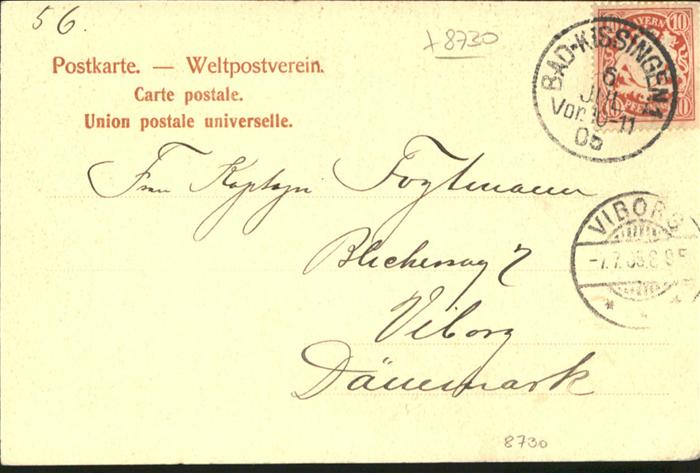 56.
+8730
Postkarte. — Weltpostverein.
Carte postale.
Union postale universelle.
10 BAYERN 10
10 PFENNIG 10
BAD-KISSINGEN 1
6
JUL
Vor. 10-11
05
Frau Kaptajn Fogtmann
7
Viborg
Dänemark
VIBORG
-7.7.05.8 9F
8730